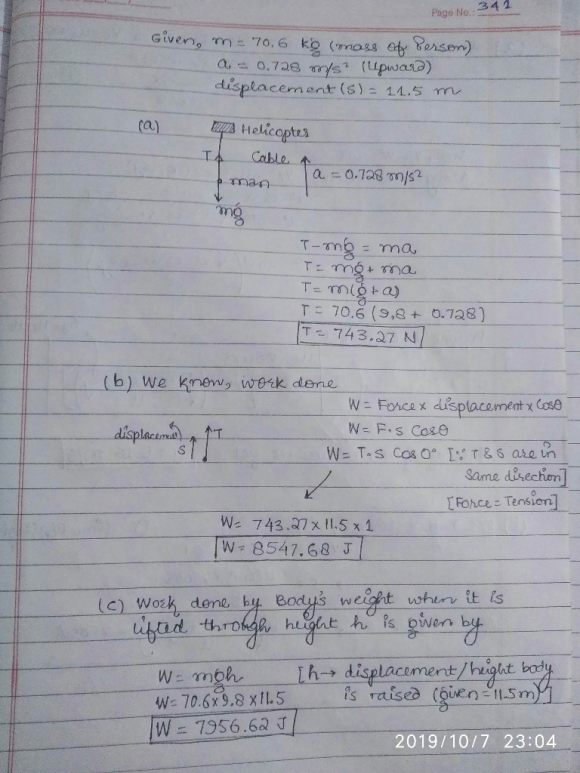 Page No.: 341
Given, m = 70.6 kg (mass of Person)
a = 0.728 m/s² (Upward)
displacement (s) = 11.5 m
(a)
Helicopter
T
Cable
a = 0.728 m/s²
man
mg
T - mg = ma
T = mg + ma
T = m(g + a)
T = 70.6 (9.8 + 0.728)
T = 743.27 N
(b) We know, work done
W = Force x displacement x Cosθ
W = F·s Cosθ
displacement
s
T
W = T·s Cos 0° [∵ T & S are in
Same direction]
[Force = Tension]
W = 743.27 x 11.5 x 1
W = 8547.68 J
(c) Work done by Body's weight when it is
lifted through height h is given by
W = mgh [h → displacement/height body
is raised (given = 11.5m)]
W = 70.6 x 9.8 x 11.5
W = 7956.62 J
2019/10/7 23:04